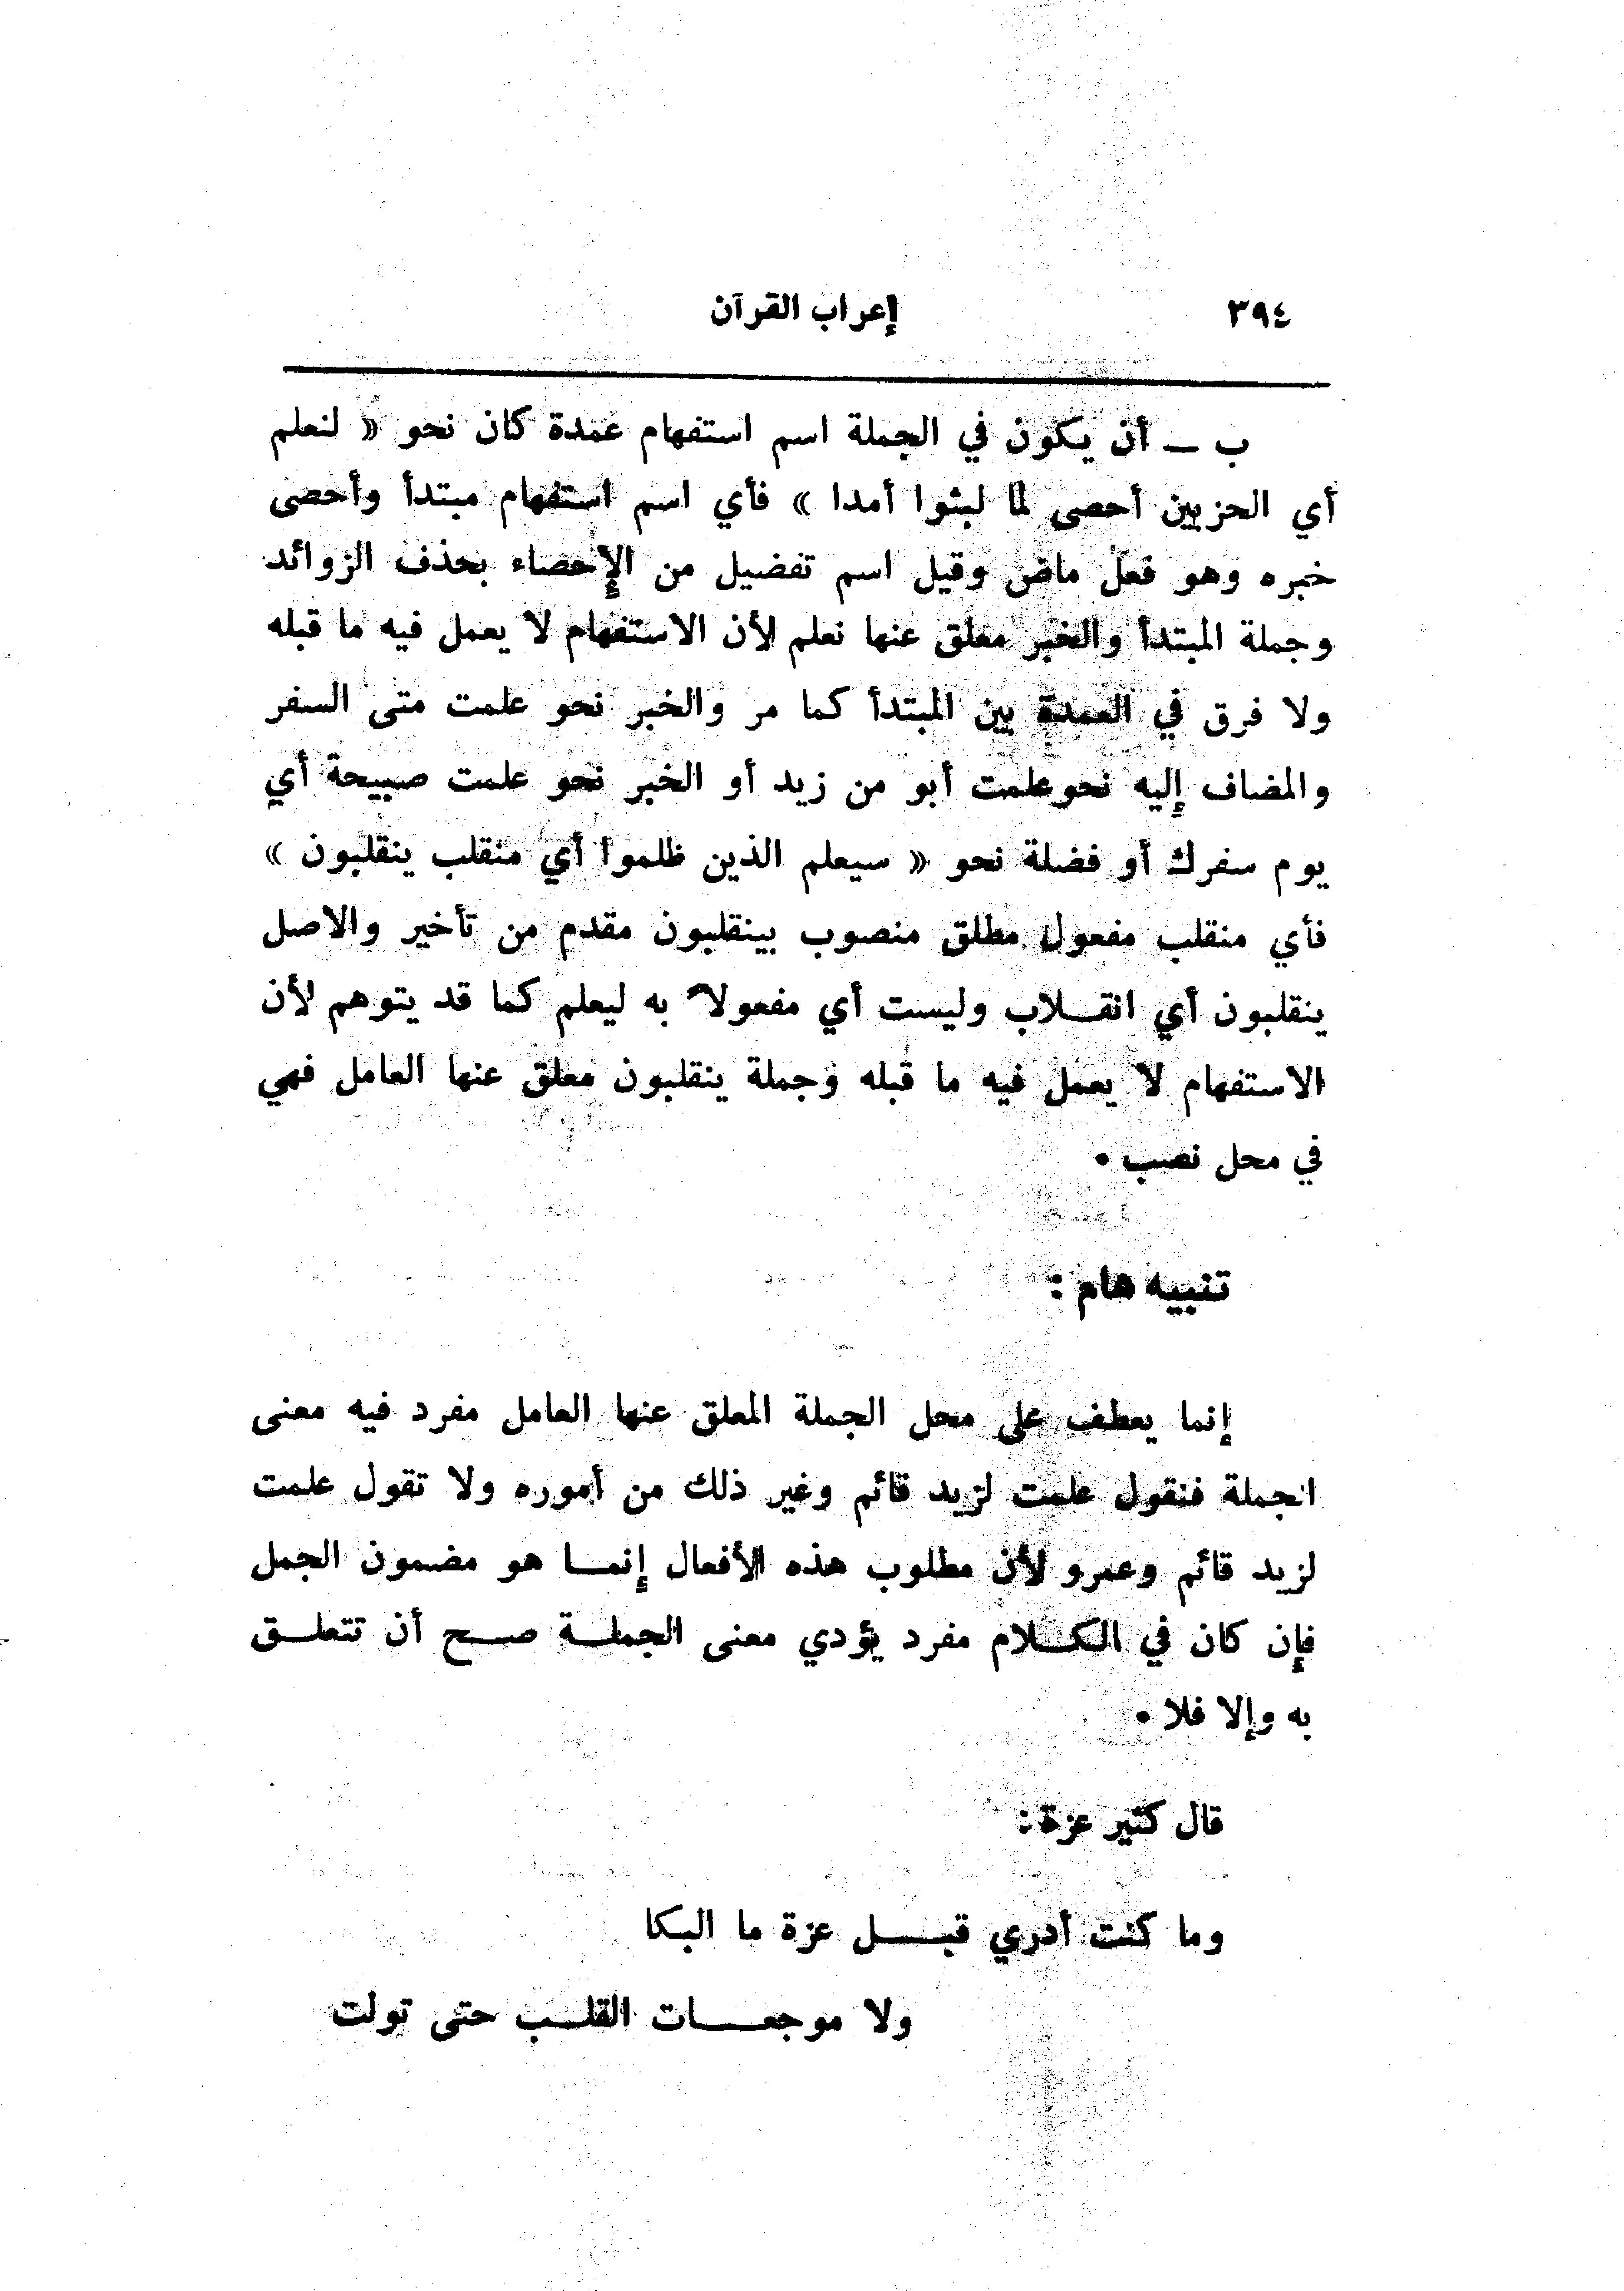 ٣٩٤ إعراب القرآن
ب ــ أن يكون في الجملة اسم استفهام عمدة كان نحو « لنعلم
أي الحزبين أحصى لما لبثوا أمدا » فأي اسم استفهام مبتدأ وأحصى
خبره وهو فعل ماض وقيل اسم تفضيل من الإحصاء بحذف الزوائد
وجملة المبتدأ والخبر معلق عنها نعلم لأن الاستفهام لا يعمل فيه ما قبله
ولا فرق في العمدة بين المبتدأ كما مر والخبر نحو علمت متى السفر
والمضاف إليه نحو علمت أبو من زيد أو الخبر نحو علمت صبيحة أي
يوم سفرك أو فضلة نحو « سيعلم الذين ظلموا أي منقلب ينقلبون »
فأي منقلب مفعول مطلق منصوب بينقلبون مقدم من تأخير والاصل
ينقلبون أي انقـلاب وليست أي مفعولا به ليعلم كما قد يتوهم لأن
الاستفهام لا يعمل فيه ما قبله وجملة ينقلبون معلق عنها العامل فهي
في محل نصب .
تنبيه هام :
إنما يعطف على محل الجملة المعلق عنها العامل مفرد فيه معنى
الجملة فنقول علمت لزيد قائم وغير ذلك من أموره ولا تقول علمت
لزيد قائم وعمرو لأن مطلوب هذه الأفعال إنمـا هو مضمون الجمل
فإن كان في الكـلام مفرد يؤدي معنى الجملـة صـح أن تتعلـق
به وإلا فلا .
قال كثير عزة :
وما كنت أدري قبـل عزة ما البكا
ولا موجعـات القلـب حتى تولت